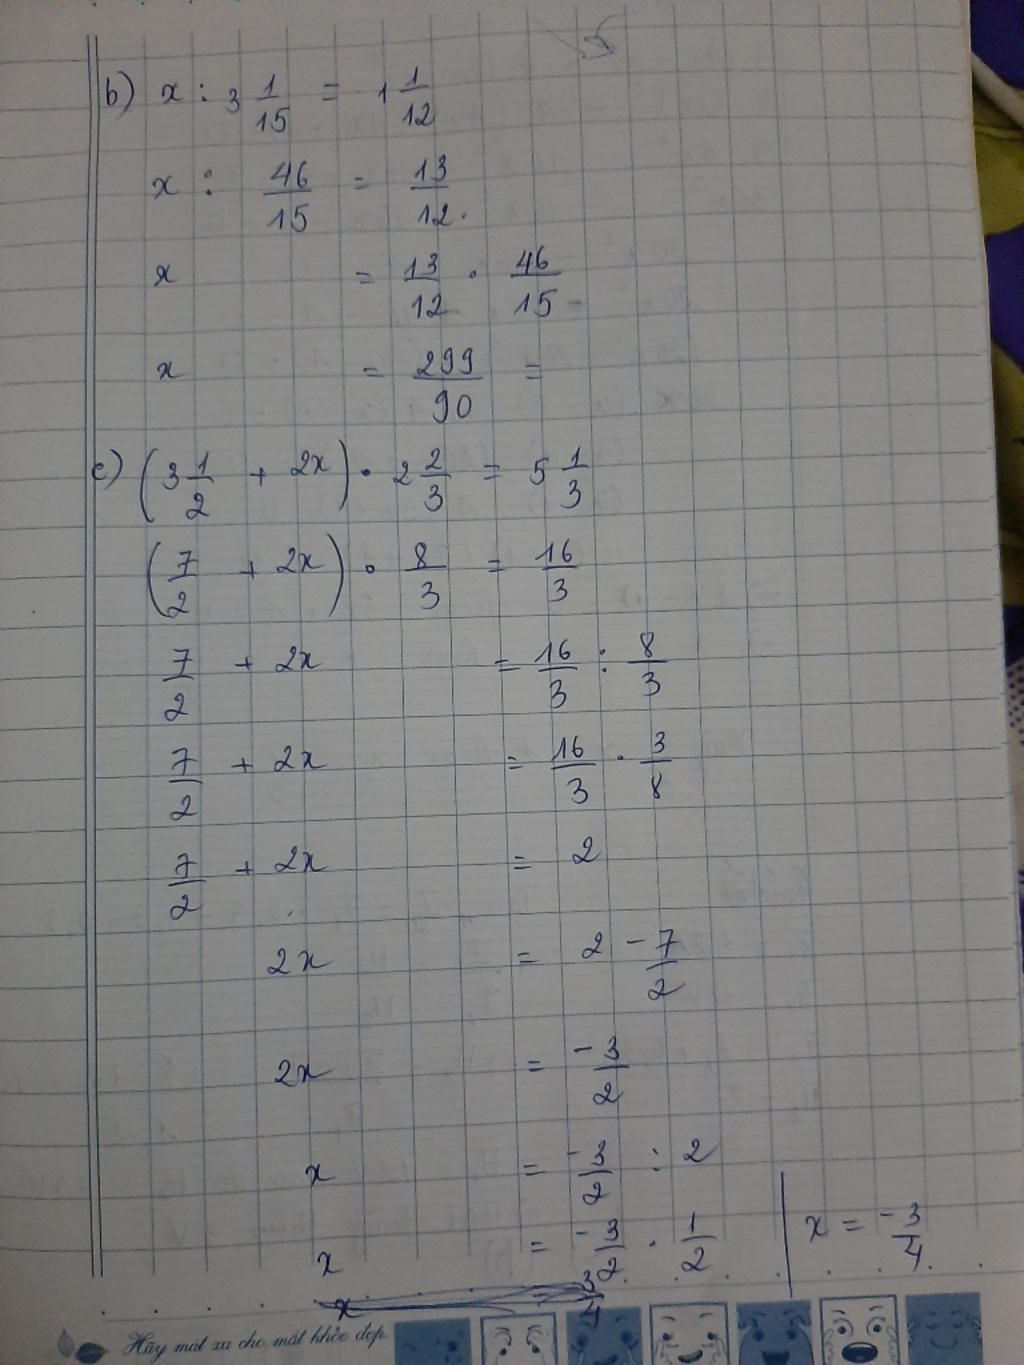 b) x : 3 1/15 = 1 1/12
x : 46/15 = 13/12.
x = 13/12 . 46/15
x = 299/90 =
c) (3 1/2 + 2x) . 2 2/3 = 5 1/3
(7/2 + 2x) . 8/3 = 16/3
7/2 + 2x = 16/3 : 8/3
7/2 + 2x = 16/3 . 3/8
7/2 + 2x = 2
2x = 2 - 7/2
2x = -3/2
x = -3/2 : 2
x = -3/2 . 1/2
x = -3/4
Hãy mát xa cho mắt khỏe đẹp